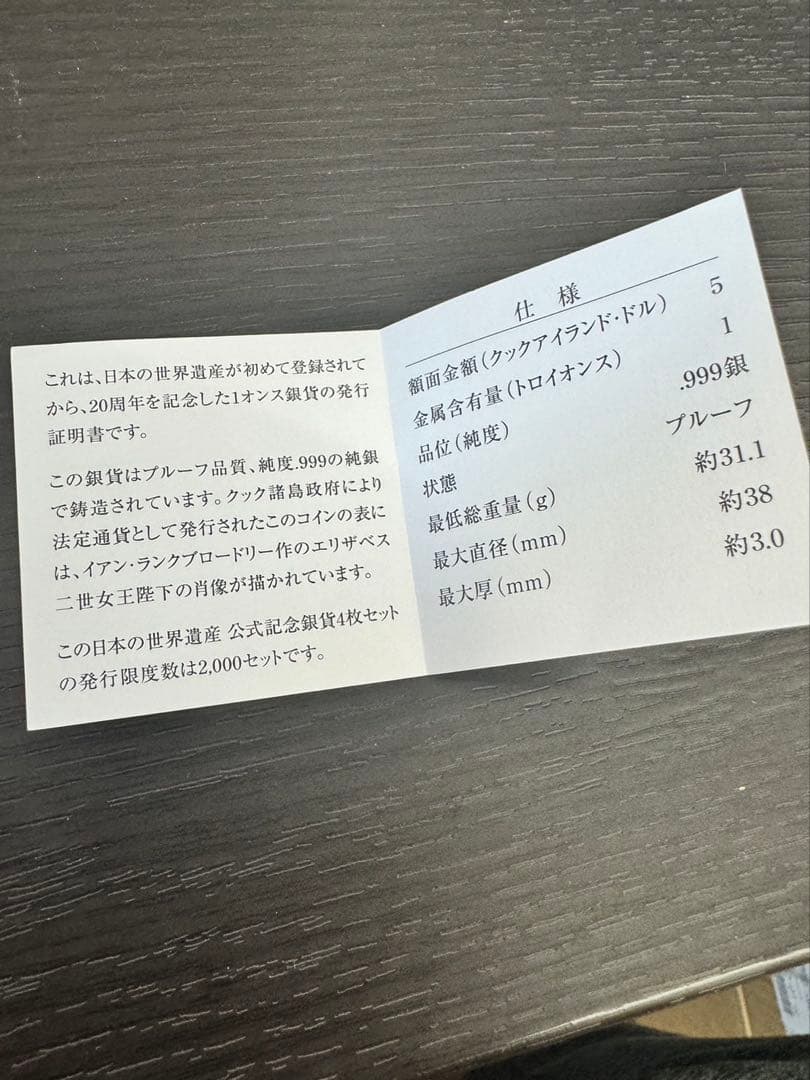 これは、日本の世界遺産が初めて登録されて
から、20周年を記念した1オンス銀貨の発行
証明書です。
この銀貨はプルーフ品質、純度.999の純銀
で鋳造されています。クック諸島政府により
法定通貨として発行されたこのコインの表に
は、イアン・ランクブロードリー作のエリザベス
二世女王陛下の肖像が描かれています。
この日本の世界遺産 公式記念銀貨4枚セット
の発行限度数は2,000セットです。
仕 様
額面金額（クックアイランド・ドル） 5
金属含有量（トロイオンス） 1
品位（純度） .999銀
状態 プルーフ
最低総重量（g） 約31.1
最大直径（mm） 約38
最大厚（mm） 約3.0